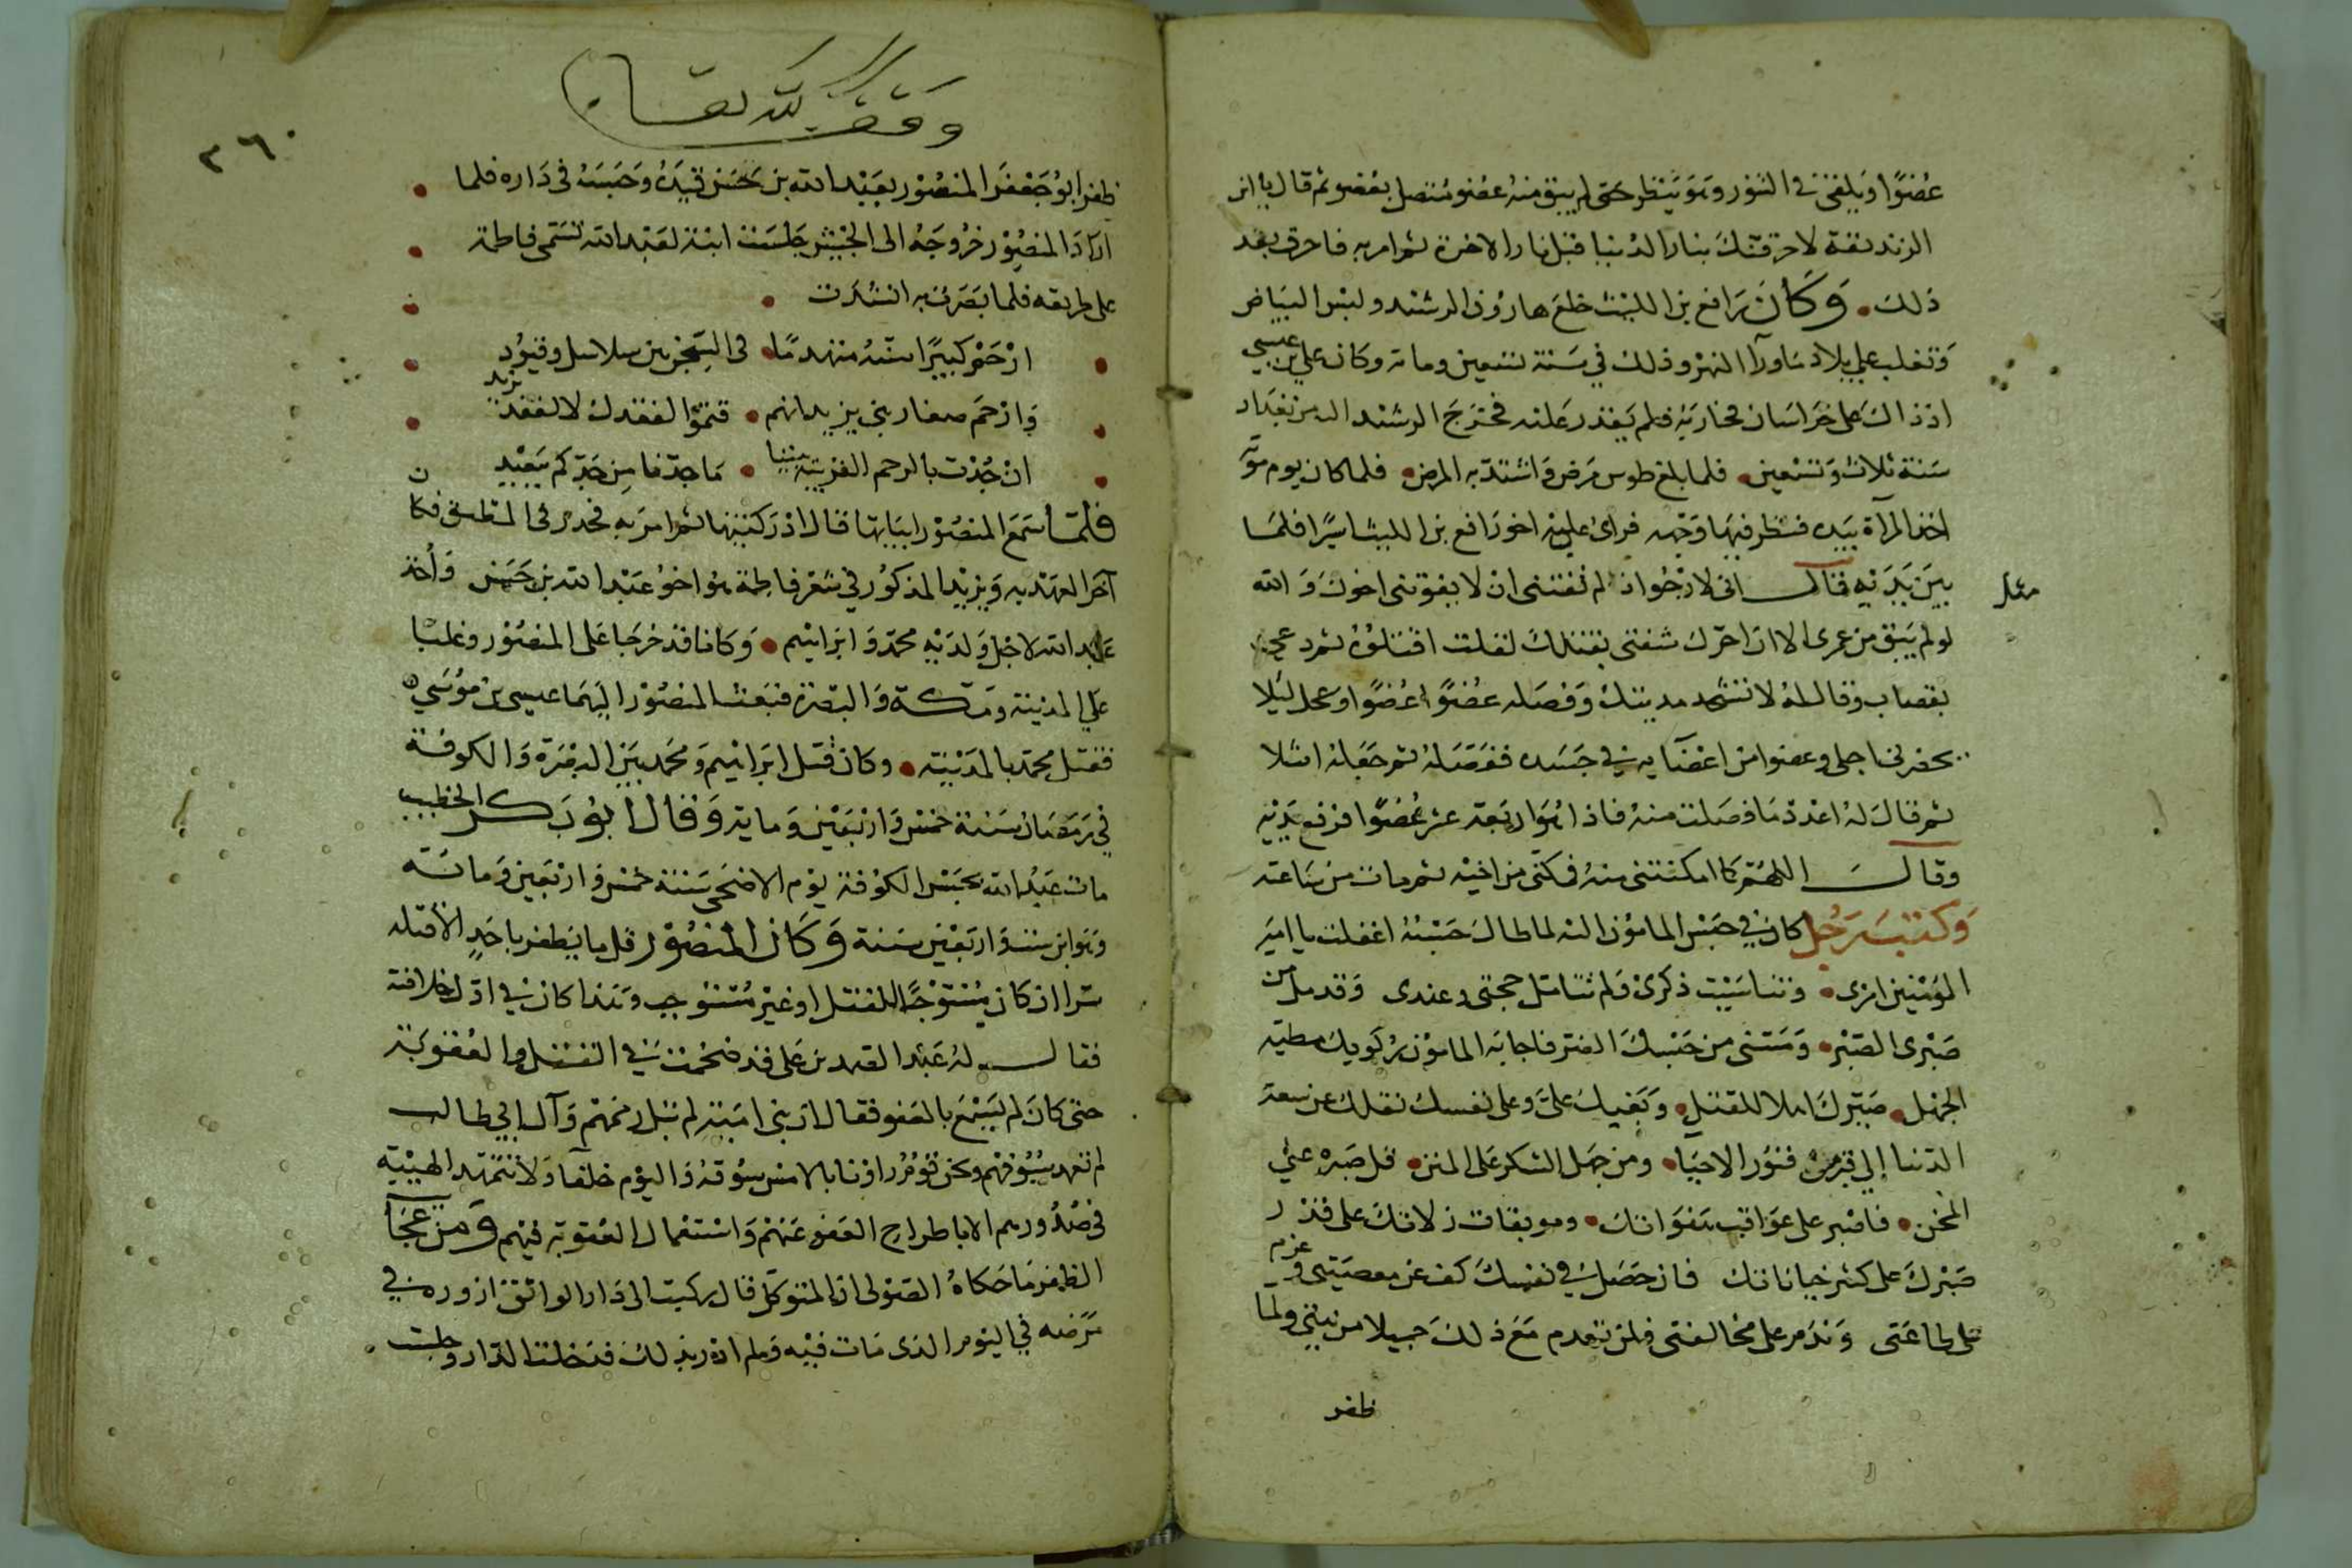 عُضْوًا ويلقى في التنور وهو ينظر حتى لم يبق منه عضو متصل بعضو ثم قال يا ابن
الزنديقة لاحرقنك بنار الدنيا قبل نار الاخرة ثم امر به فاحرق بعد
ذلك وكان رافع بن الليث خلع هارون الرشيد ولبس البياض
وتغلب على بلاد ماورآ النهر وذلك في سنة تسعين وماية وكان علي بن عيسى
اذ ذاك على خراسان فحاربه فلم يقدر عليه فخرج الرشيد اليه من بغداد
سنة ثلاث وتسعين فلما بلغ طوس مرض واشتد به المرض فلما كان يوم
اخذ المرآة بيده فنظر فيها وجهه فرأى عليه اخو رافع بن الليث اسيرا فلما
مثل
بين يديه قال اني لارجوا ان لم تفتني ان لا يفوتني اخوك والله
لو لم يبق من عمرى الا ان احرك شفتي بقتلك لقلت اقتلوه ثم دعى
بقصاب وقال له لا تشحد مديتك وفصله عضوًا عضوًا وعجل ليلا
يحضرني اجلي وعضوا من اعضايه في جسده ففصله ثم جعله اشلا
ثم قال له اعدد ما فصلت منه فاذا هو اربعة عشر عضوًا فرفع يديه
وقال اللهم كما امكنتني منه فمكني من اخيه ثم مات من ساعته
وكتب رجل كان في حبس المامون اليه لما طال حبسه اغفلت يا امير
المؤمنين امرى وتناسيت ذكرى ولم تتامل حجتي وعندى وقد مل من
صبرى الصبر ومسني من حبسك الضر فاجابه المامون ركوبك مطية
الجهل صيرك اهلا للقتل وبغيك علىَّ وعلى نفسك نقلك عن سعة
الدنيا إلى قبر من قبور الاحيا ومن جهل الشكر على المنن قل صبره على
المحن فاصبر على عواقب هفواتك وموبقات زلاتك على قدر
صبرك على كثير خياناتك فان حصل في نفسك كف عن معصيتي وعزم
على طاعتى وندم على مخالفتى فلن تعدم مع ذلك جميلا من نيتي ولما
ظفر
وقف لله تعالى
٢٦٠
ظفر ابو جعفر المنصور بعبد الله بن حسن قيده وحبسه في داره فلما
اراد المنصور خروجه الى الجيش جلست ابنة لعبد الله تسمى فاطمة
على طريقه فلما بصرت به انشدت
ارحم كبيرًا سنه متهدمًا في السجن بين سلاسل وقيود
وارحم صغار بني يزيد انهم يتموا لفقدك لا لفقد يزيد
ان جدت بالرحم القريبة بيننا ما جدنا من جدكم ببعيد
فلما سمع المنصور ابياتها قال اذكرتنيها ثم امر به فحدر في المطبق فكان
آخر العهد به ويزيد المذكور في شعر فاطمة هو اخو عبد الله بن حسن وأخذ
عبد الله لاجل ولديه محمد وابراهيم وكانا قد خرجا على المنصور وغلبا
على المدينة ومكة والبصرة فبعث المنصور اليهما عيسى بن موسى
فقتل محمد بالمدينة وكان قتل ابراهيم ومحمد بين البصرة والكوفة
في رمضان سنة خمس واربعين وماية وقال ابو بكر الخطيب
مات عبد الله بحبس الكوفة يوم الاضحى سنة خمس واربعين وماية
وهو ابن ست واربعين سنة وكان المنصور قل ما يظفر باحد الا قتله
سرا ان كان مستوجبًا للقتل او غير مستوجب وهذا كان في اول خلافته
فقال له عبد الصمد بن على قد هجمت في القتل والعقوبة
حتى كان لم يسمع بالعفو فقال ان بنى امية لم تبل رممهم وآل ابي طالب
لم تغمد سيوفهم ونحن قوم راونا بالامس سوقة واليوم خلفآ ولا تتمهد الهيبة
في صدورهم الا باطراح العفو عنهم واستعمال العقوبة فيهم ومن عجآ
الظفر ما حكاه الصولى ان المتوكل قال ركبت الى دار الواثق ازوره في
مرضه في اليوم الذى مات فيه ولم ادر بذلك فدخلت الدار وجلست